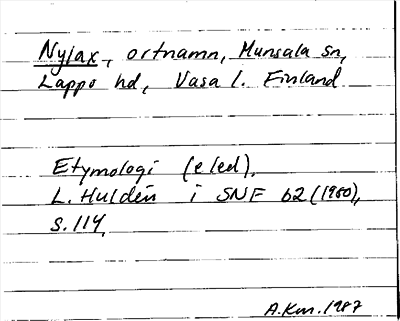 Nylax, ortnamn, Munsala sn,
Lappo hd, Vasa l. Finland
Etymologi (eled).
L. Huldén i SNF 62 (1980),
s. 114.
A.Km. 1987